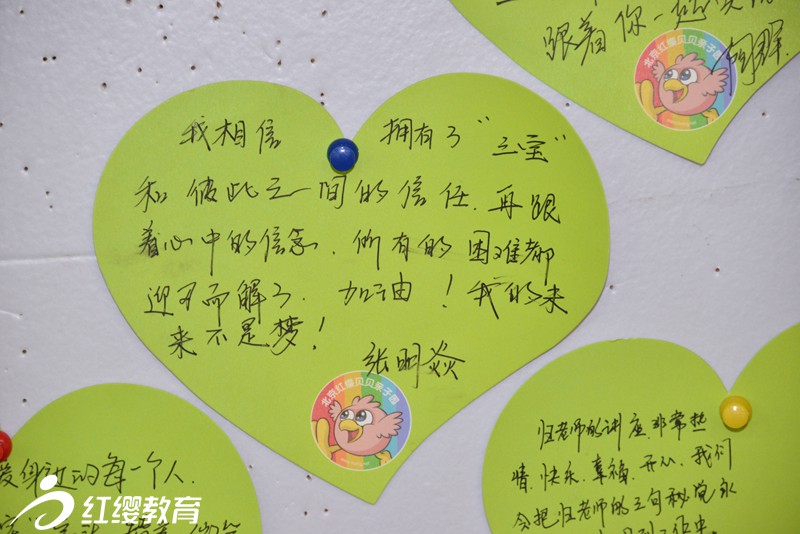 跟着你一起
北京红缨贝贝亲子园
我相信 拥有了“三宝”
和彼此之间的信任,再跟
着心中的信念,所有的困难都
迎刃而解了,加油!我的未
来不是梦!
张明焱
北京红缨贝贝亲子园
爱身边的每一个人,
归老师的讲座,非常热
情、快乐、幸福、开心,我们
会把归老师的三句秘诀永
红缨教育